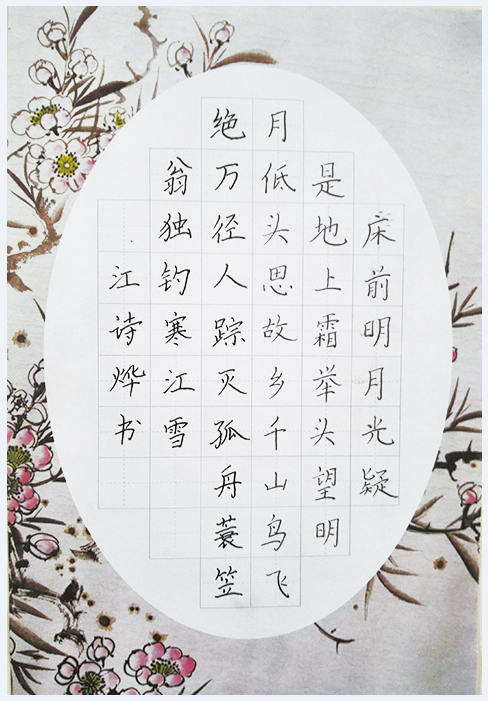 床前明月光疑
是地上霜举头望明
月低头思故乡千山鸟飞
绝万径人踪灭孤舟蓑笠
翁独钓寒江雪
江诗烨书